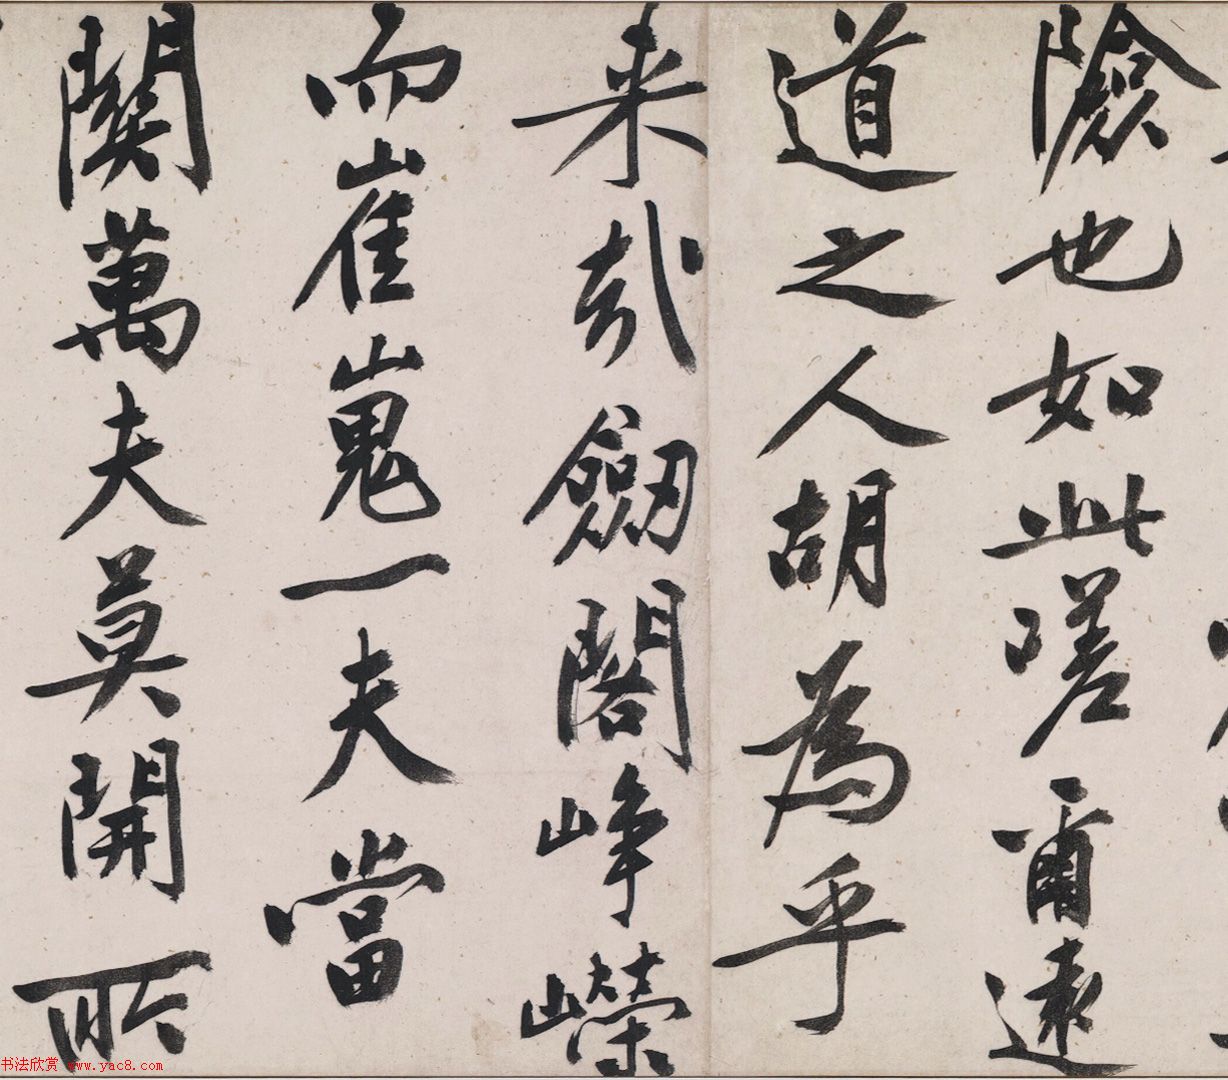 險也如此嗟爾遠
道之人胡為乎
来哉劔閣崢嶸
而崔嵬一夫當
関萬夫莫開所
书法欣赏 www.yac8.com